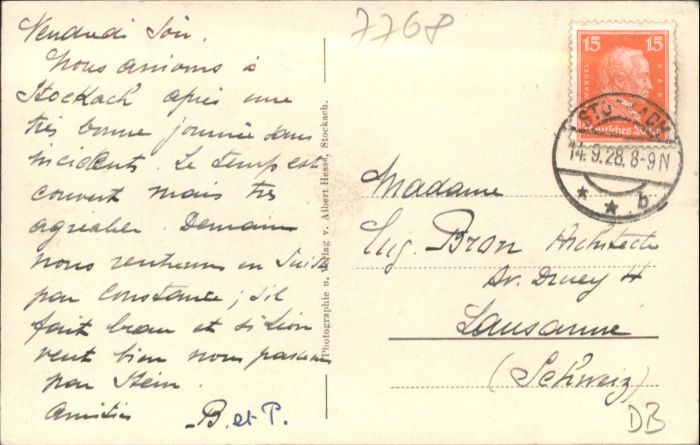 Vendredi Soir.
Nous arrivons à
Stockach après une
très bonne journée sans
incidents. Le temps est
couvert mais très
agréable. Demain
nous rentrerons en Suisse
par Constance ; s'il
fait beau et si l'on
veut bien nous
par Stein.
amitiés B. et P.
Photographie u. Verlag v. Albert Hesse, Stockach.
7768
15 15
IMMANUEL KANT
Deutsches Reich
STOCKACH
14.9.28. 8-9 N
* * b
Madame
Eug. Bron Architecte
Av. Druey 4
Lausanne
(Schweiz)
DB